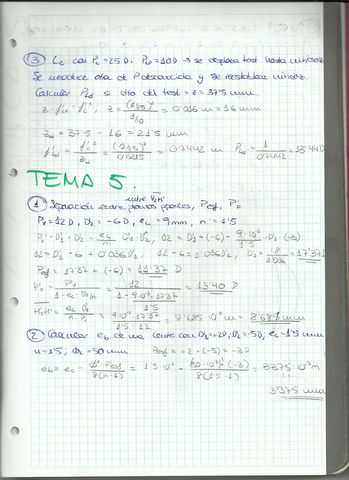 ③ Lc con Pc = 25D. Pv = 10D → se desplaza test hasta nitidez
Se introduce otra de P desconocida y se restablece nitidez.
Calcular Pud si dto. del test = z = 37'5 mm.
z · f'v = f'c²   z = (1/25)² / 1/10 = 0'016 m = 16 mm
zud = 37'5 - 16 = 21'5 mm
f'ud = f'c² / zud = (1/25)² / 0'0215 = 0'0742 m   Pud = 1 / 0'0742 = 13'44 D
TEMA 5.
① Separación entre planos ppales, Pef, P'v
entre V₂H'
Pv = 12D, D₂ = -6D, ec = 9mm, n = 1'5
12 = D₁ + (-6) - 9·10⁻³ / 1'5 · D₁ (-6)
12 = D₁ - 6 + 0'036 D₁   12 + 6 = 1'036 D₁   D₁ = 18 / 1'036 = 17'37 D
Pef = 17'37 + (-6) = 11'37 D
P'v = Pv / 1 - ec · D₁/n = 12 / 1 - 9·10⁻³ · 17'37 / 1'5 = 13'40 D
= 9·10⁻³ · 17'37 / 1'5 · 12 = 8'685 · 10⁻³ m = 8'687 mm
② Calcular eb de una lente con D₁ = +2D, D₂ = -5D, ec = 1'5 mm
n = 1'5, ф = 50 mm   Pef = +2 + (-5) = -3D
eb = ec - ф² Pef / 8(n-1) = 1'5·10⁻³ - (50·10⁻³)² (-3) / 8(1'5 - 1) = 3'375·10⁻³ m
3'375 mm